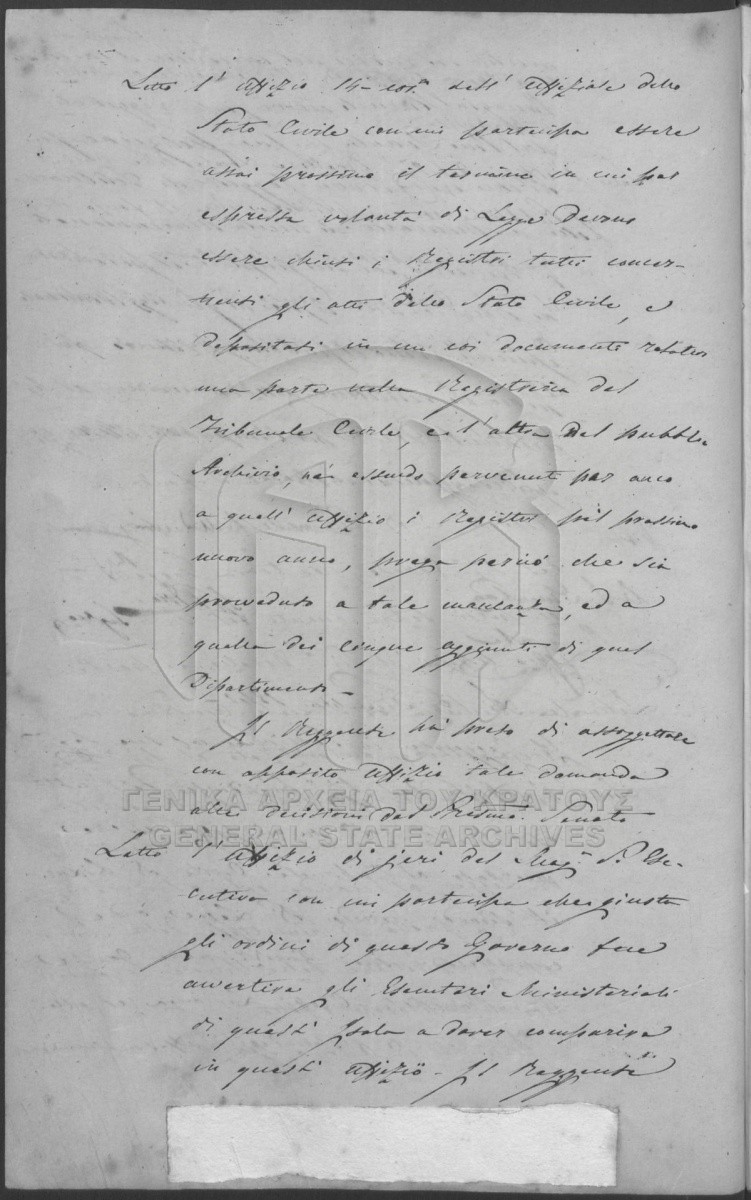 Letto l' Uffizio 14 cor.e dell' Uffiziale dello
Stato Civile con cui partecipa essere
assai prossimo il termine in cui per
espressa volontà di Legge devono
essere chiusi i Registri tutti concer-
nenti gli atti dello Stato Civile, e
depositati in un coi documenti relativi
una parte nella Registreria del
Tribunale Civile, e l'altra nel pubblo
Archivio, nè essendo pervenuti per anco
a quell' Uffizio i Registri pel prossimo
nuovo anno, prega perciò che sia
provveduto a tale mancanza, ed a
quella dei cinque aggiunti di quel
Dipartimento –
Il Reggente ha preso di assoggettare
con apposito Uffizio tale domanda
alle decisioni del Prestmo Senato
ΓΕΝΙΚΑ ΑΡΧΕΙΑ ΤΟΥ ΚΡΑΤΟΥΣ
GENERAL STATE ARCHIVES
Letto l' Uffizio di jeri del P. Ese-
cutivo con cui partecipa che giusta
gli ordini di questo Governo fece
avvertire gli Esecutori Ministeriali
di quest' Isola a dover comparire
in quest' Uffizio – Il Reggente